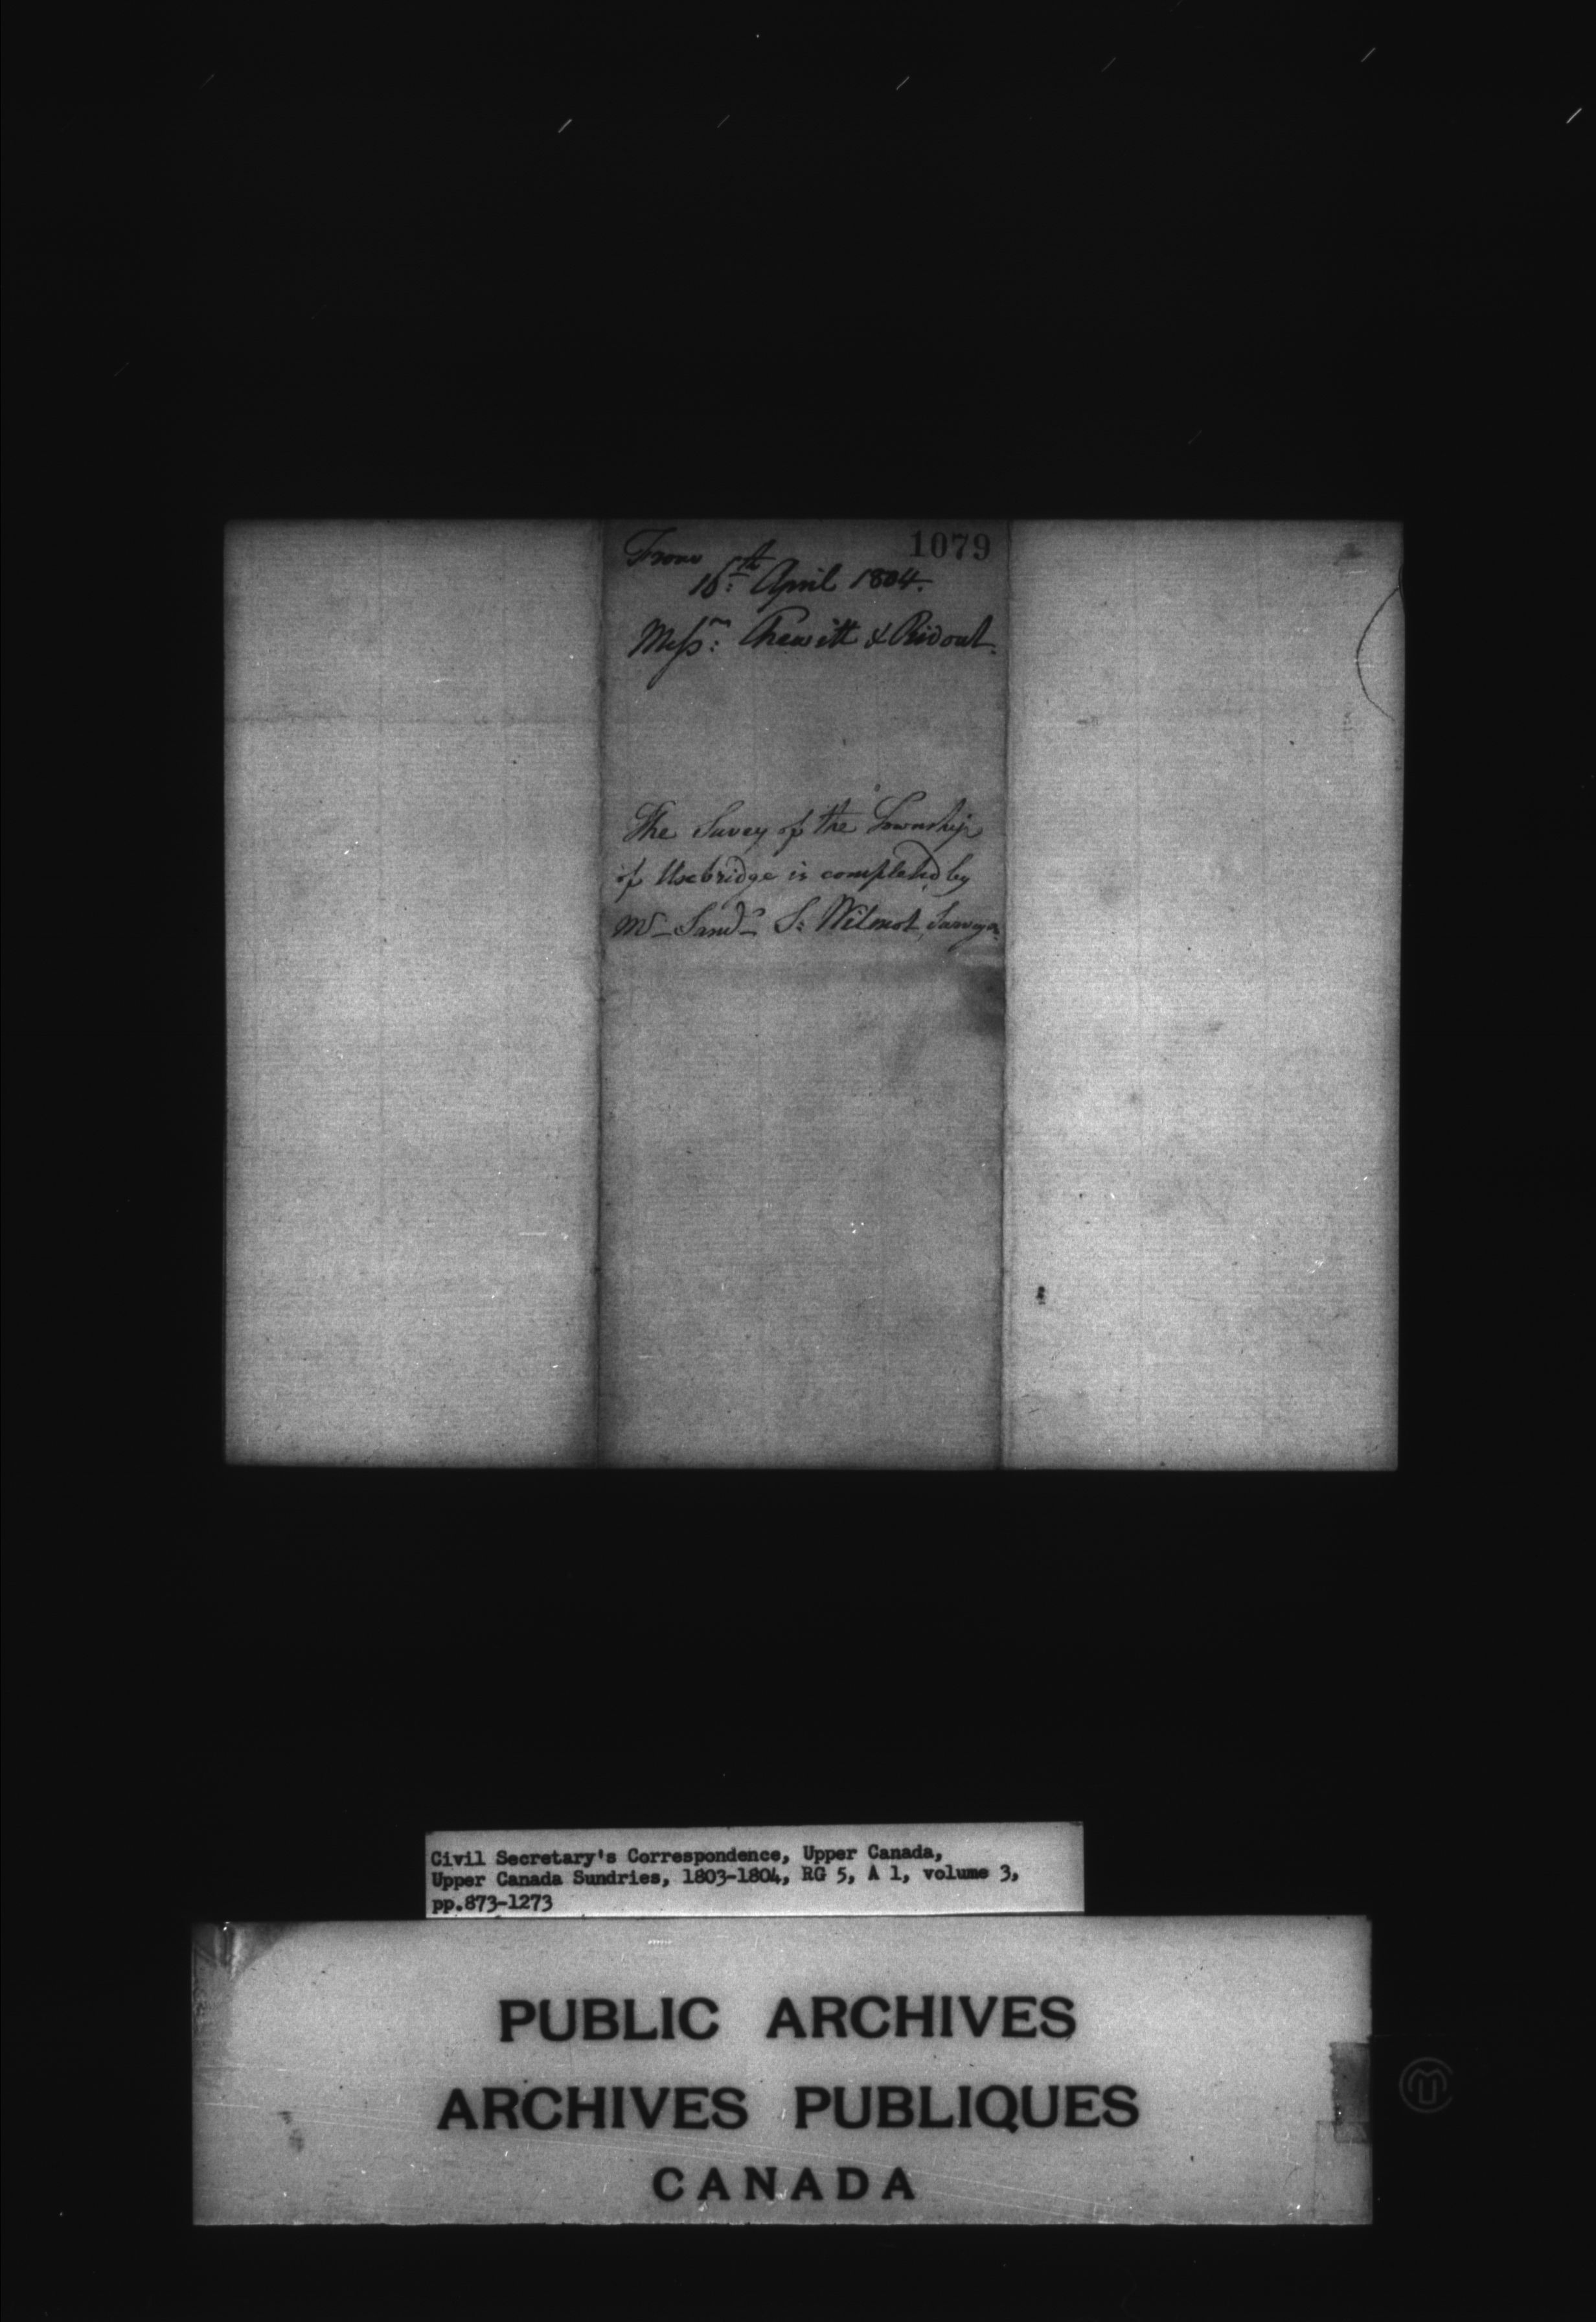 1079
From
16th April 1804.
Messrs: Chewitt & Ridout.
The Suvey of the Township
of Uxebridge is completed by
Mr Saml S: Wilmot, Surveyor
Civil Secretary's Correspondence, Upper Canada,
Upper Canada Sundries, 1803-1804, RG 5, A 1, volume 3,
pp.873-1273
PUBLIC ARCHIVES
ARCHIVES PUBLIQUES
CANADA